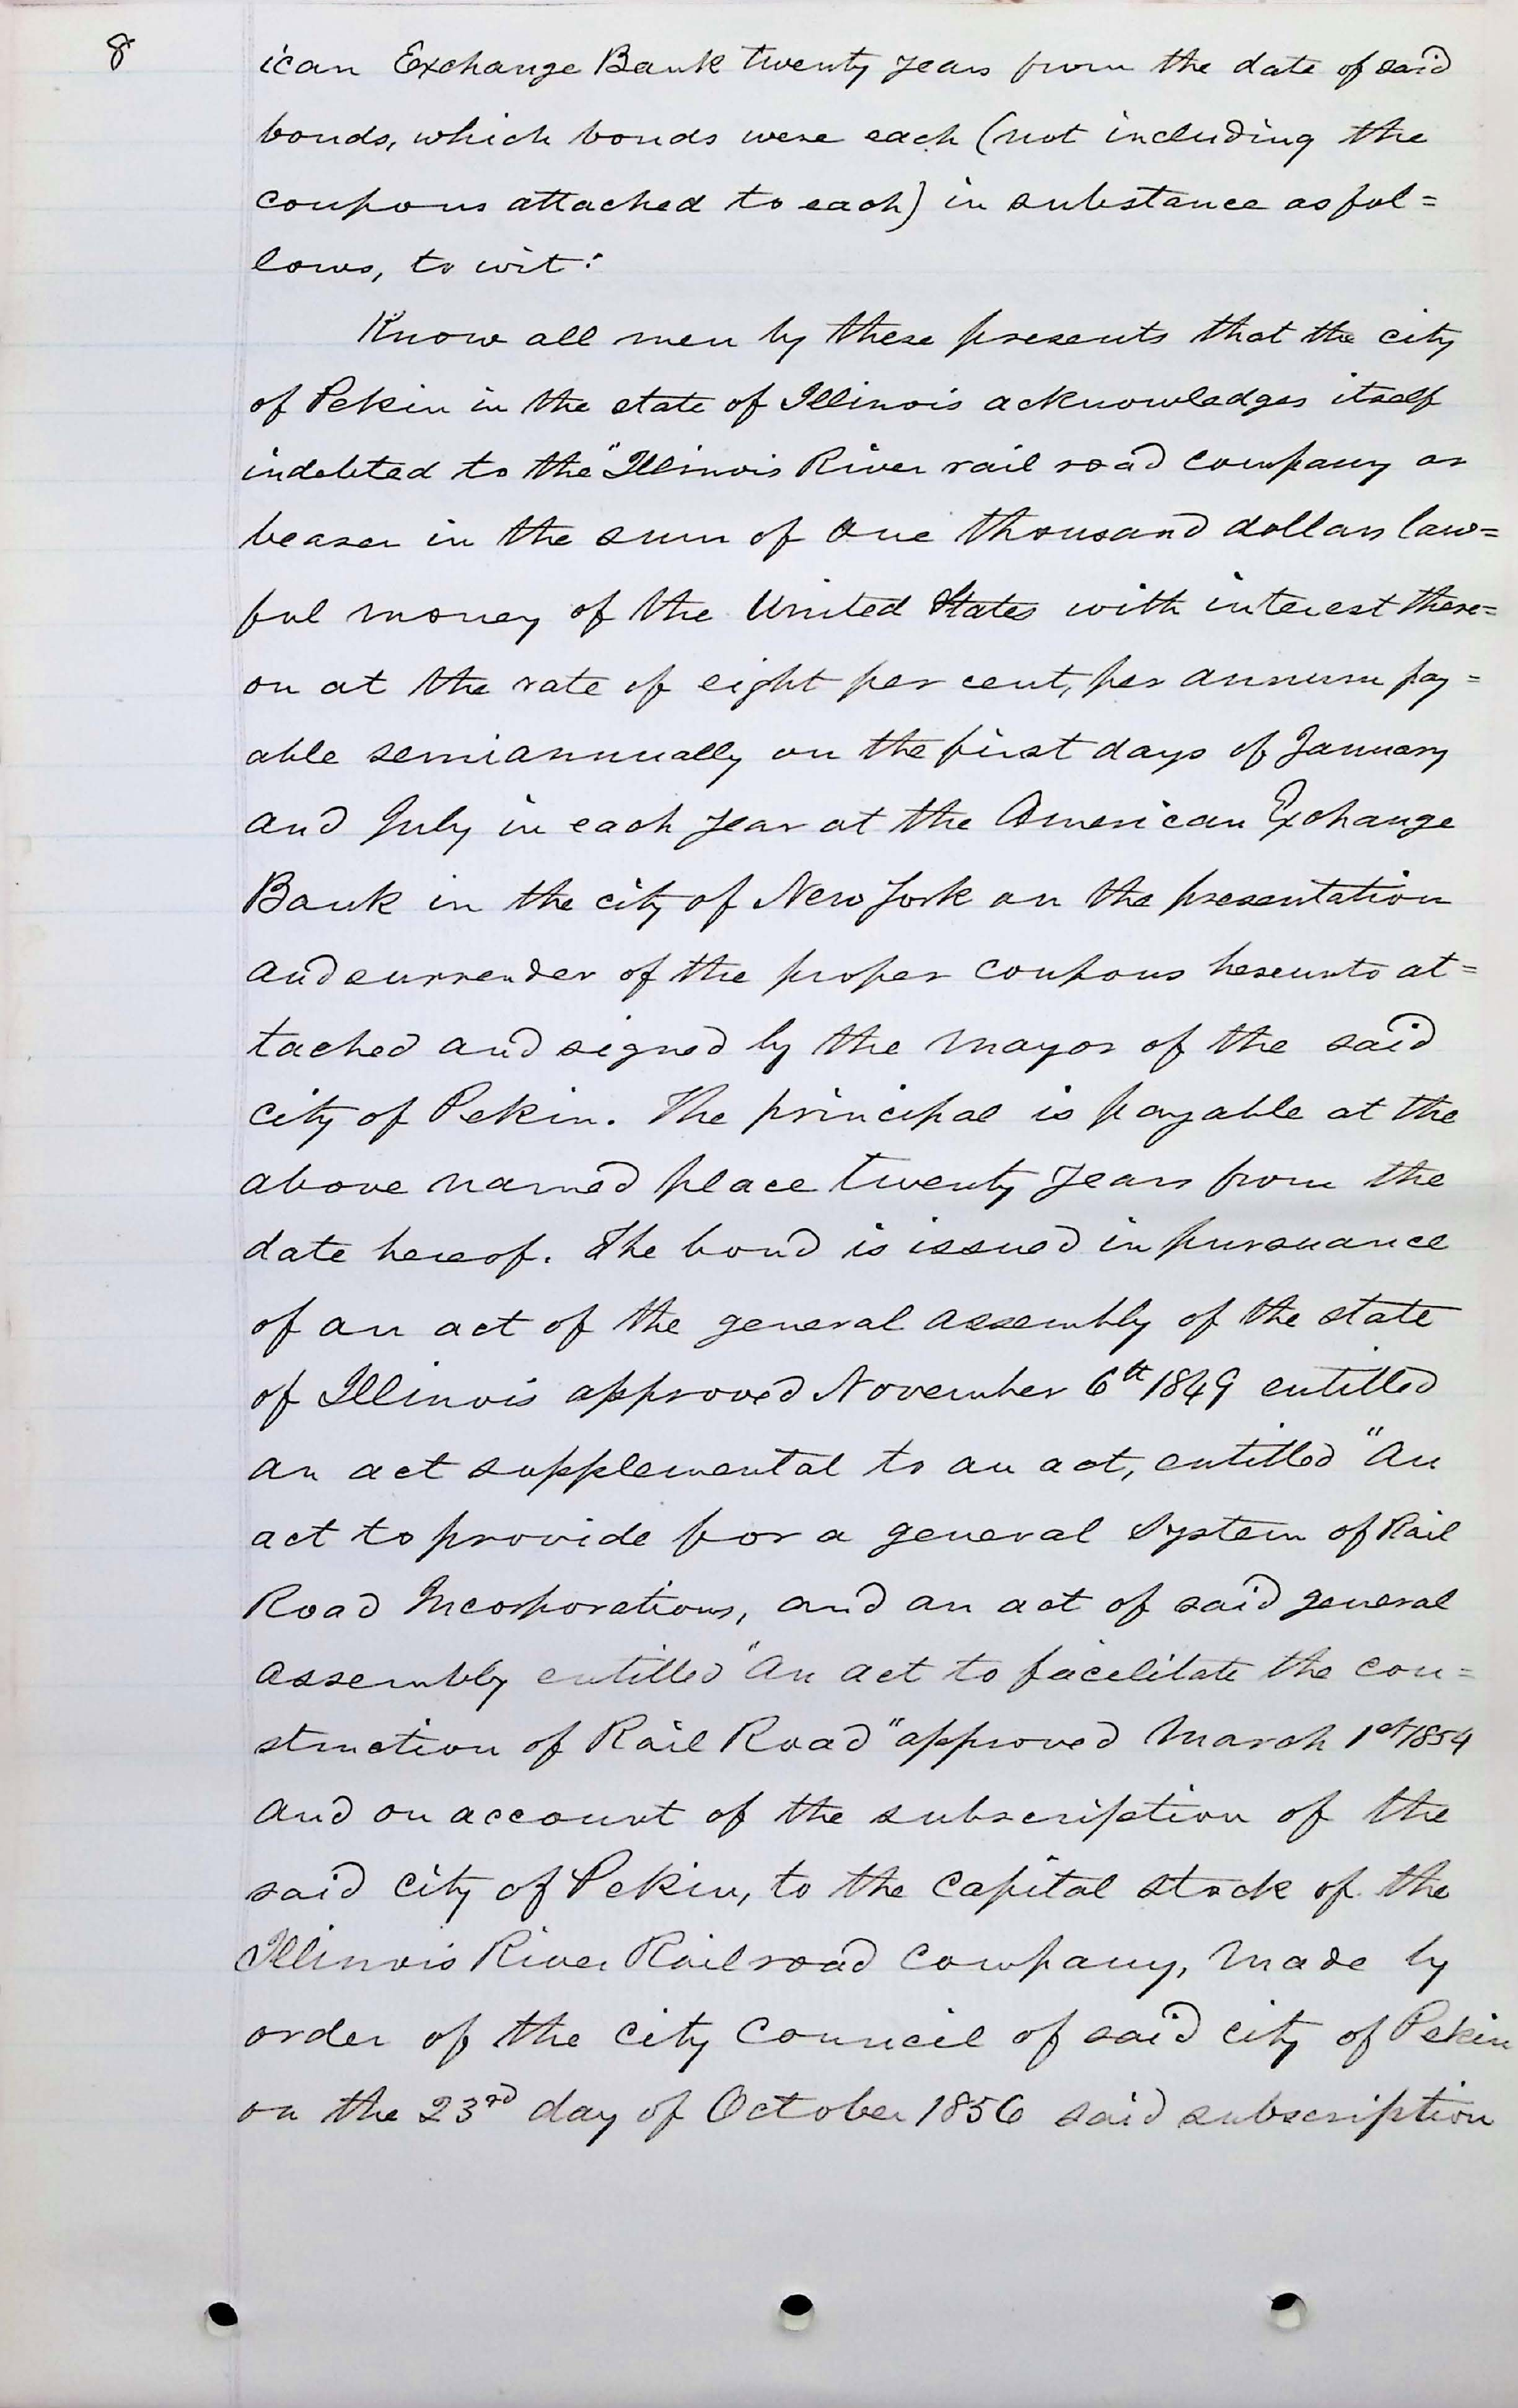 8
ican Exchange Bank twenty years from the date of said
bonds, which bonds were each (not including the
coupons attached to each) in substance as fol=
lows, to wit:
Know all men by these presents that the city
of Pekin in the state of Illinois acknowledges itself
indebted to the "Illinois River rail road company or
bearer in the sum of One thousand dollars law=
ful money of the United States with interest there=
on at the rate of eight per cent, per annum pay=
able semiannually on the first days of January
and July in each year at the American Exchange
Bank in the city of New York on the presentation
and surrender of the proper coupons hereunto at=
tached and signed by the Mayor of the said
city of Pekin. The principal is payable at the
above named place twenty years from the
date hereof. The bond is issued in pursuance
of an act of the general assembly of the state
of Illinois approved November 6th 1849 entitled
an act supplemental to an act, entitled "An
act to provide for a general System of Rail
Road Incorporations, and an act of said general
assembly entitled "An act to facilitate the con=
struction of Rail Road" approved March 1st 1854
and on account of the subscription of the
said city of Pekin, to the Capital stock of the
Illinois River Railroad Company, made by
order of the City Council of said city of Pekin
on the 23rd day of October 1856 said subscription